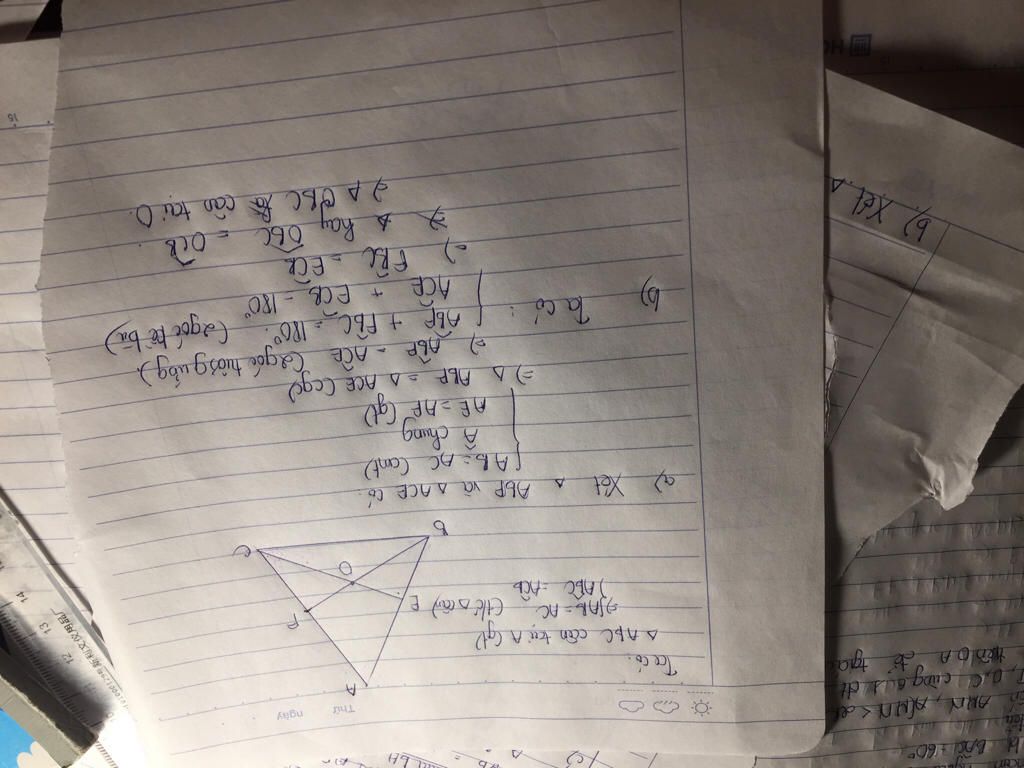 Thứ
ngày
Ta có:
Δ ABC cân tại A (gt)
=> { AB = AC (t/c Δ cân)
ABC = ACB
A
F
E
O
C
B
a) Xét Δ ABF và Δ ACE có:
{ AB = AC (cmt)
Â chung
AE = AF (gt)
=> Δ ABF = Δ ACE (cgc)
=> ABF = ACE (2 góc tương ứng).
b) Ta có: { ABF + FBC = 180°. (2 góc kề bù)
ACE + ECB = 180°
=> FBC = ECB
=> Δ hay OBC = OCB.
=> Δ OBC cân tại O.
b) Xét Δ
12 13 14
15
BAC = 60°